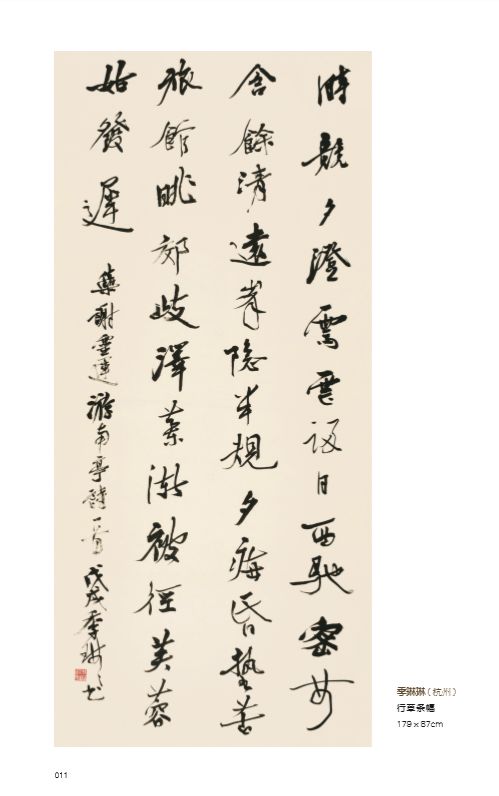 時競夕澄霽雲歸日西馳密林
含餘清遠峯隐半規夕痗昏墊苦
旅館眺郊歧澤蘭漸被徑芙蓉
始發遲
謝靈運游南亭詩一首 戊戌季琳琳书
季琳琳（杭州）
行草条幅
179 x 87cm
011